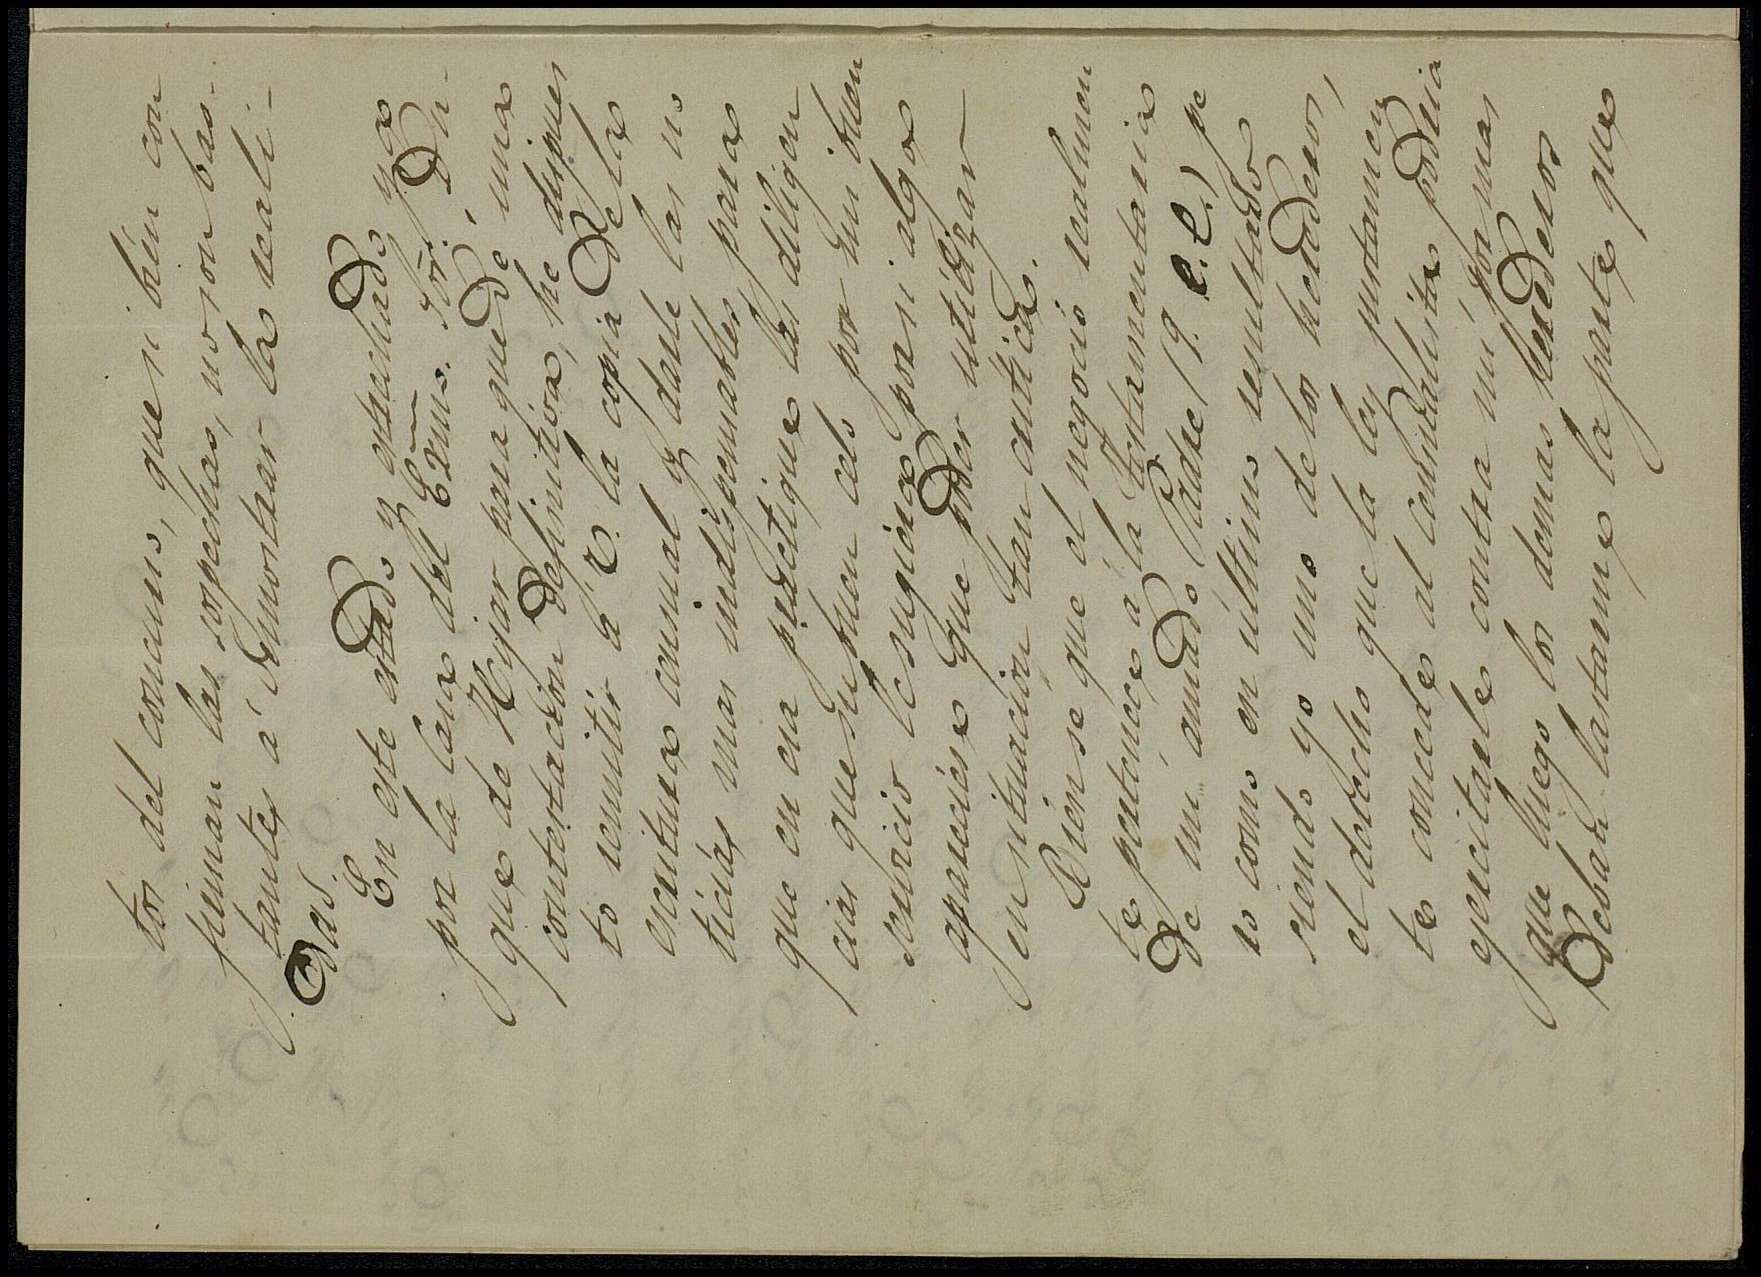 tos del concurso, que si bien con
firman las sospechas, no son bas-
tantes á demostrar la reali-
dad.
En este estado y gastado ya
por la Casa del Exmo. Sõr. Du-
que de Hijar para que dé una
contestacion definitiva, he dispues
to remitir á V. la copia de la
escritura censual y darle las no
ticias mas indispensables para
que en esa practique las diligen
cias que su buen celo por mi buen
servicio le sugiera por si algo
apareciese que poder utilizar
en situacion tan critica.
Bien se que el negocio realmen
te pertenece á la testamentaria
de mi amado Padre (q. e. e.) pe
ro como en ultimo resultado
siendo yo uno de los herederos,
el derecho que la ley justamen
te concede al censalista podria
ejercitarle contra mí por mas
que luego los demas herederos
deban lastarme la parte que